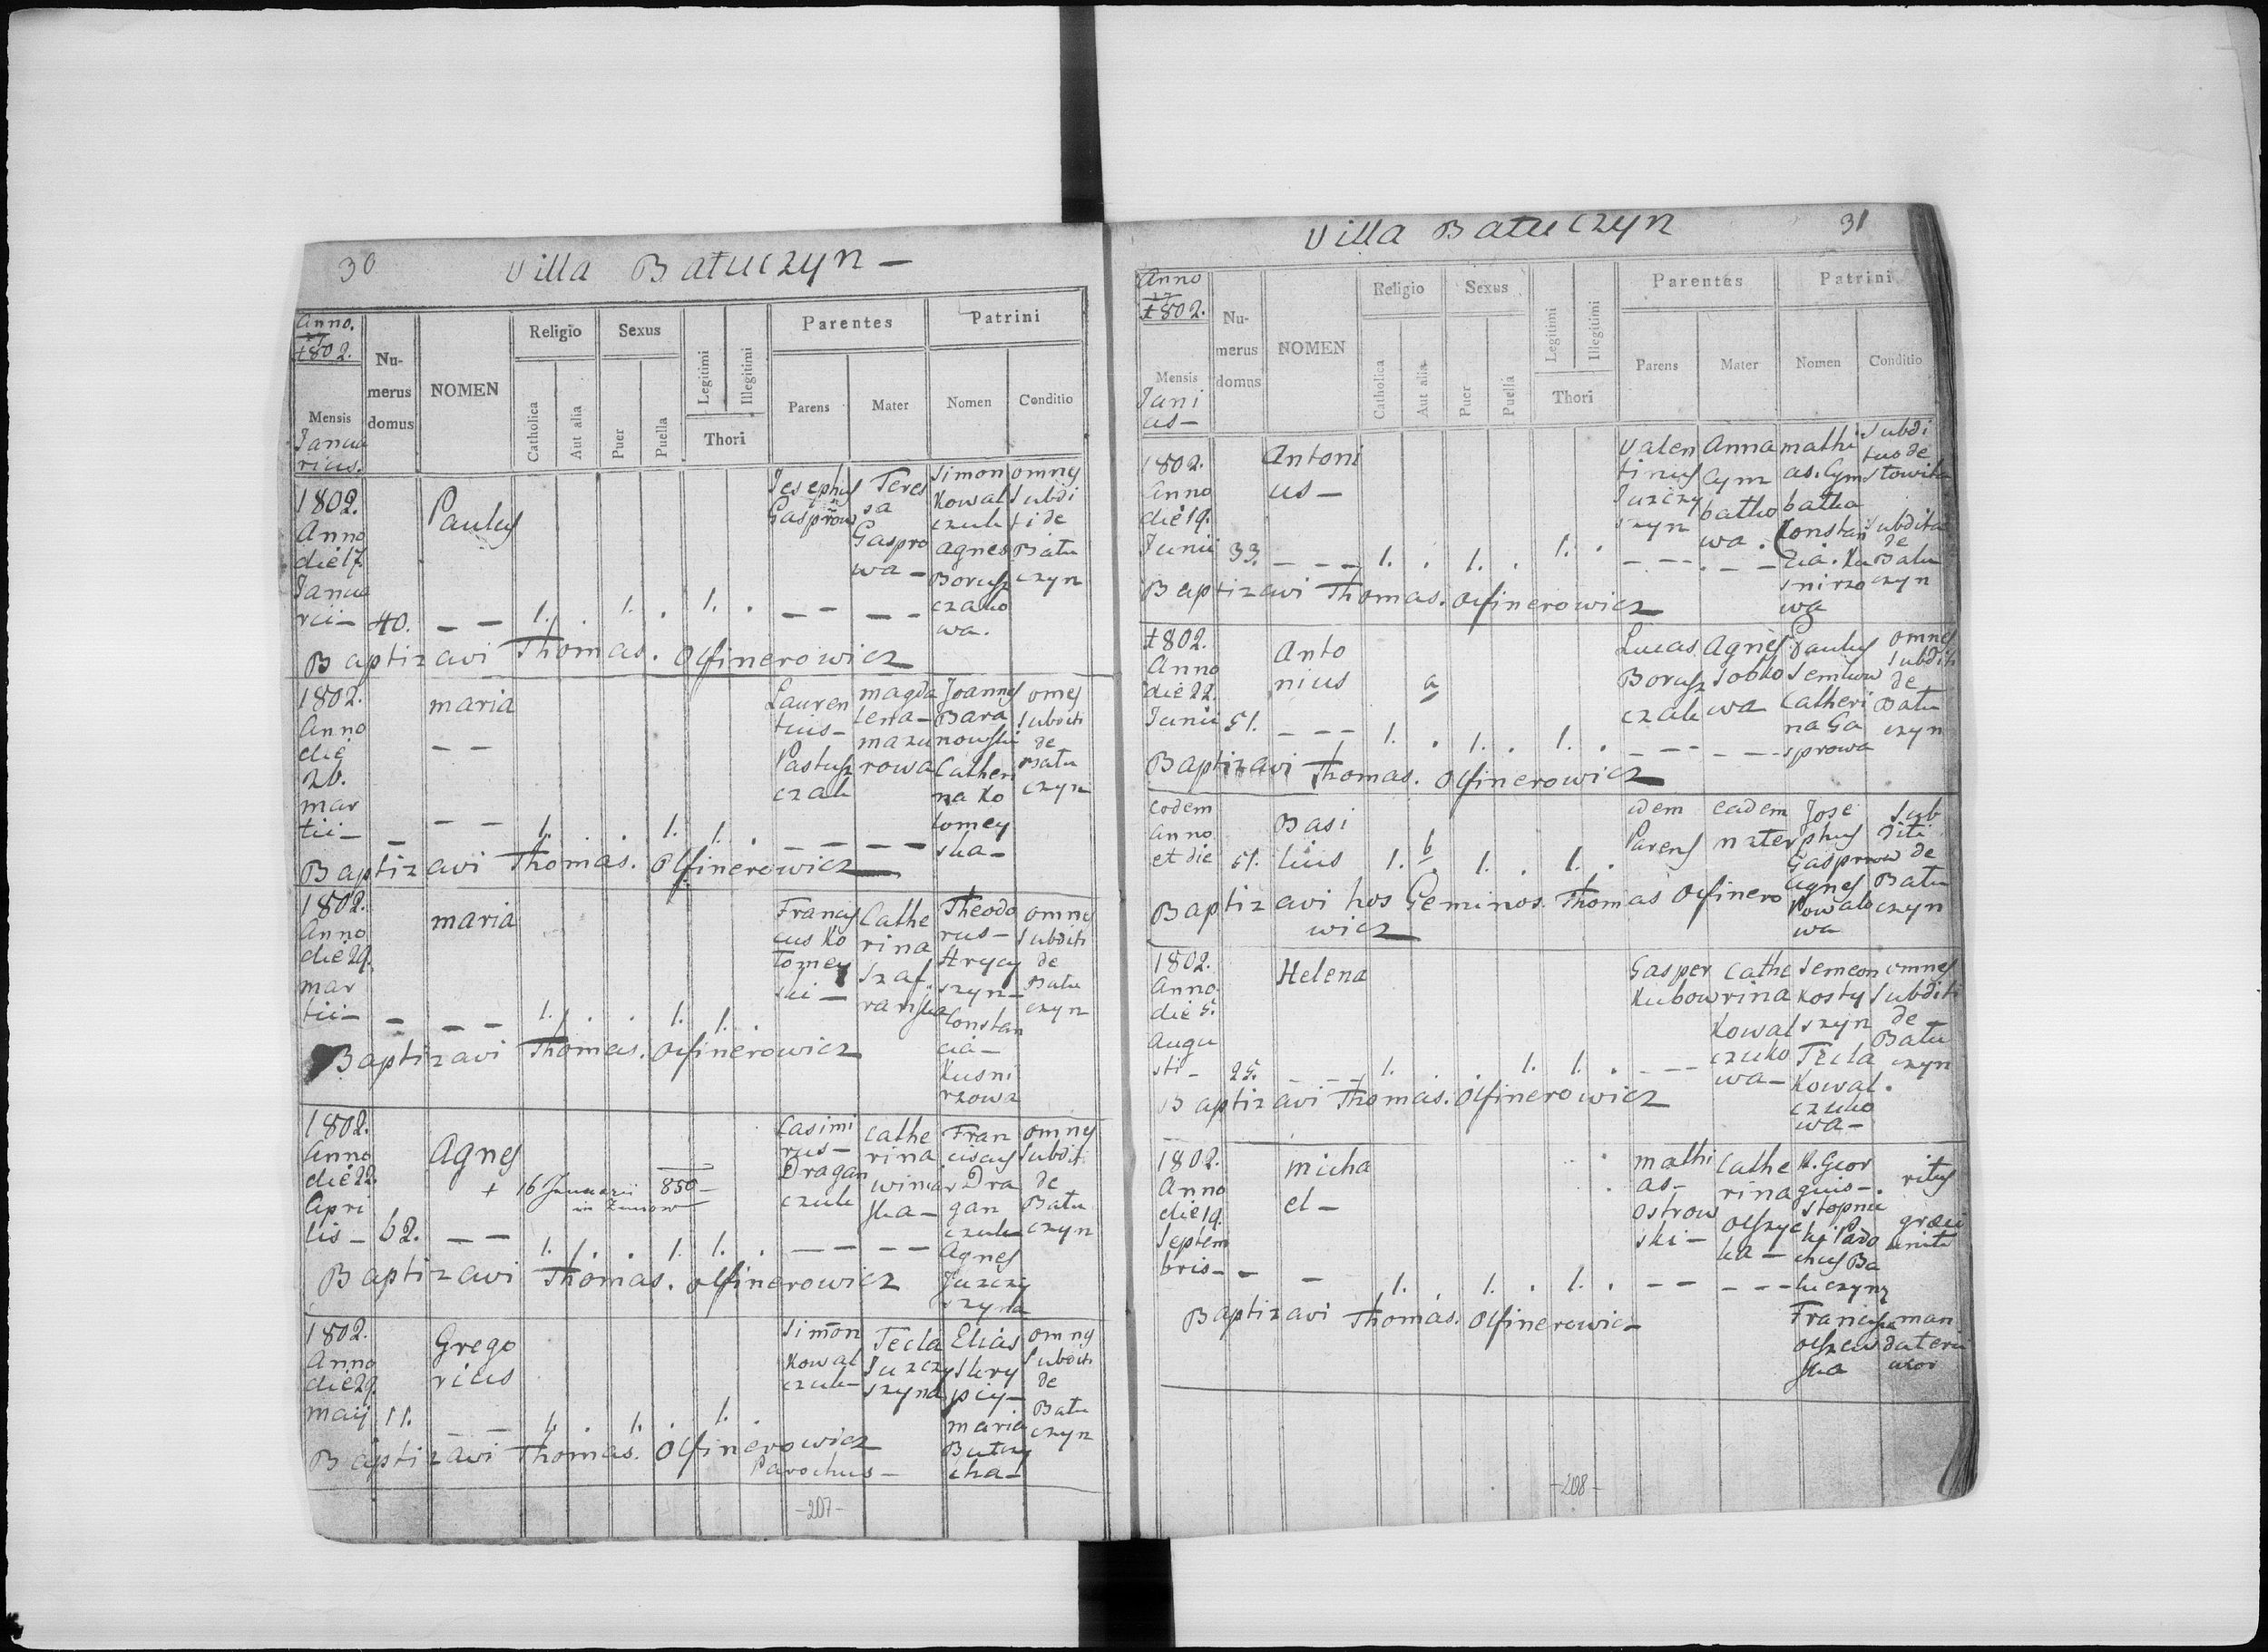 30
Villa Batuczyn -
Anno.
1802.
Mensis
Janua
rius.
Nu-
merus
domus
NOMEN
Religio
Catholica
Aut alia
Sexus
Puer
Puella
Legitimi
Illegitimi
Thori
Parentes
Parens
Mater
Patrini
Nomen
Conditio
1802.
Anno
die 17.
Janua
rii - 40.
Paulus
- - 1. . 1. . 1. . - - - -
Josephus
Gasprow
Teres
sa
Gaspro
wa -
Simon
Kowal
czuk
Agnes
Borusz
czako
wa.
omnes
Subdi
ti de
Batu
czyn
Baptizavi Thomas. Olfinerowicz
1802.
Anno
die
26.
mar
tii -
maria
- -
- - 1. . . 1. 1. . - - - -
Lauren
tius -
Pastusz
czak
magda
lena -
mazu
rowa
Joannes
Bara
nowski
Catheri
na Ko
tomey
ska -
omes
Subditi
de
Batu
czyn
Baptizavi Thomas. Olfinerowicz
1802.
Anno
die 29.
mar
tii -
maria
- - - 1. . . 1. 1. .
Francis
cus Ko
tomey
ski -
Cathe
rina
Szaf
ranska
Theodo
rus -
Hrycy
szyn -
Constan
cia -
Kusni
rzowa
omnes
Subditi
de
Batu
czyn
Baptizavi Thomas. Olfinerowicz
1802.
Anno
die 22.
Apri
lis - 62.
Agnes
+ 16 Januarii 850 -
in Zimow
- - 1. . . 1. 1. . - - - -
Casimi
rus -
Dragan
czuk
Cathe
rina
winiar
ska -
Fran
ciscus
Dra
gan
czuk
Agnes
Juzczy
szyna
omnes
Subditi
de
Batu
czyn
Baptizavi Thomas. Olfinerowicz
1802.
Anno
die 29.
maij 11.
Grego
rius
- - 1. . 1. . 1. .
Simon
Kowal
czuk -
Tecla
Juzczy
szyna
Elias
Skry
piy -
maria
Butry
cha -
omnes
Subditi
de
Batu
czyn
Baptizavi Thomas. Olfinerowicz
Parochus -
-207-
Villa Batuczyn
31
Anno
1802.
Mensis
Juni
us -
Nu-
merus
domus
NOMEN
Religio
Catholica
Aut alia
Sexus
Puer
Puella
Legitimi
Illegitimi
Thori
Parentes
Parens
Mater
Patrini
Nomen
Conditio
1802.
Anno
die 19.
Junii 33.
Antoni
us -
- - - 1. . 1. . 1. . - - - - -
Valen
tinus
Juzczy
szyn
Anna
Cym
batko
wa.
mathi
as. Cym
batka
Konstan
zia. Ku
snirzo
wa
Subdi
tus de
Stowita
Subdita
de
Batu
czyn
Baptizavi Thomas. Olfinerowicz
1802.
Anno
die 22.
Junii 51.
Anto
nius
a
- - - 1. . 1. . 1. . - - - - - -
Lucas
Borusz
czak
Agnes
Sobko
wa
Paulus
Semkow
Catheri
na Ga
sprowa
omnes
Subditi
de
Batu
czyn
Baptizavi Thomas. Olfinerowicz
eodem
anno
et die 51.
Basi
lius
b
1. . 1. . 1. .
idem
Parens
eadem
mater
Jose
phus
Gasprow
Agnes
Kowalo
wa
Sub
diti
de
Batu
czyn
Baptizavi hos Geminos. Thomas Olfinero
wicz
1802.
Anno.
die 5.
Augu
sti - 25.
Helena
- - - 1. . . 1. 1. . - - -
Gasper
Kubow
Cathe
rina
Kowal
czuko
wa -
Semeon
Kosty
szyn
Tecla
Kowal
czuko
wa -
omnes
Subditi
de
Batu
czyn
Baptizavi Thomas. Olfinerowicz
1802.
Anno
die 19.
Septem
bris - -
micha
el -
- 1. . 1. . 1. . - - - - -
mathi
as -
Ostrow
ski -
Cathe
rina
Olszyc
ka -
R. Geor
gius -
ritus
græci
uniti
Francisca
Olszew
ska
man
datarii
uxor
Baptizavi Thomas. Olfinerowicz
-208-